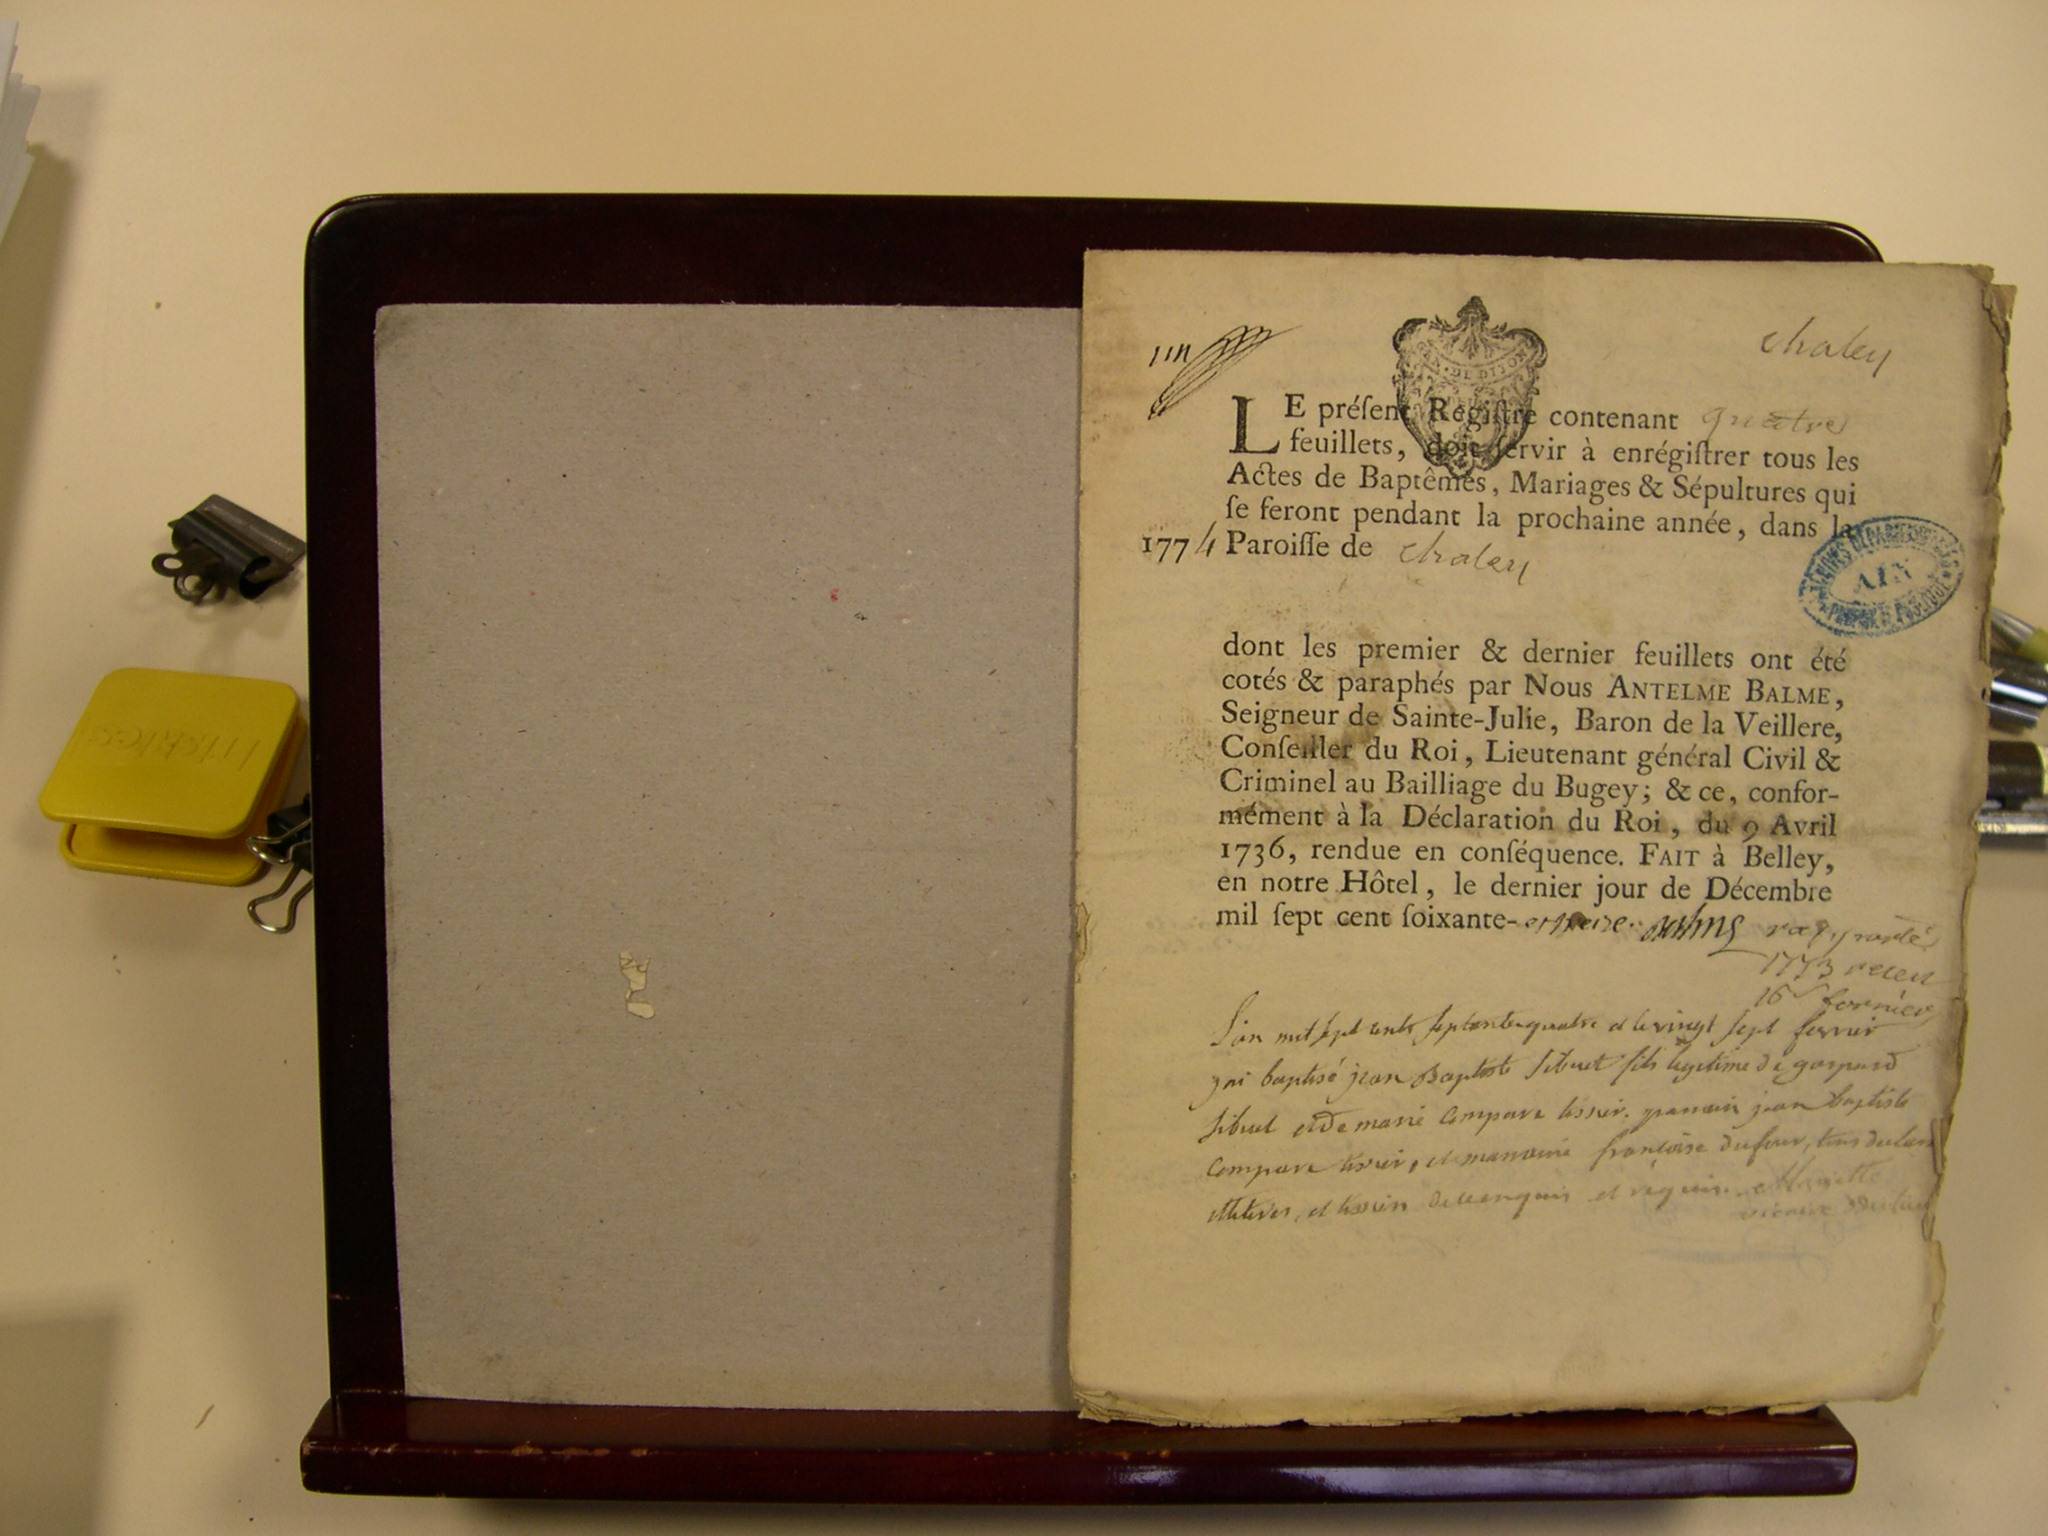 chaley
GÉN. DE DIJON
LE préſent Regiſtre contenant quatre
feuillets, doit ſervir à enrégiſtrer tous les
Actes de Baptêmes, Mariages & Sépultures qui
ſe feront pendant la prochaine année, dans la
1774 Paroiſſe de chaley
AIN
dont les premier & dernier feuillets ont été
cotés & paraphés par Nous ANTELME BALME,
Seigneur de Sainte-Julie, Baron de la Veillere,
Conſeiller du Roi, Lieutenant général Civil &
Criminel au Bailliage du Bugey; & ce, confor-
mément à la Déclaration du Roi, du 9 Avril
1736, rendue en conſéquence. FAIT à Belley,
en notre Hôtel, le dernier jour de Décembre
mil ſept cent ſoixante-et treize. Balme
1773
L'an mil sept cents septante quatre et le vingt sept fevrier
j'ai baptisé jean Baptiste Sibuet fils legitime de gaspard
Sibuet et de marie compare tissier. parrain jean baptiste
compare tissier, et marraine françoise dufour, tous
illiteres, et tissier de ce enquis et requis